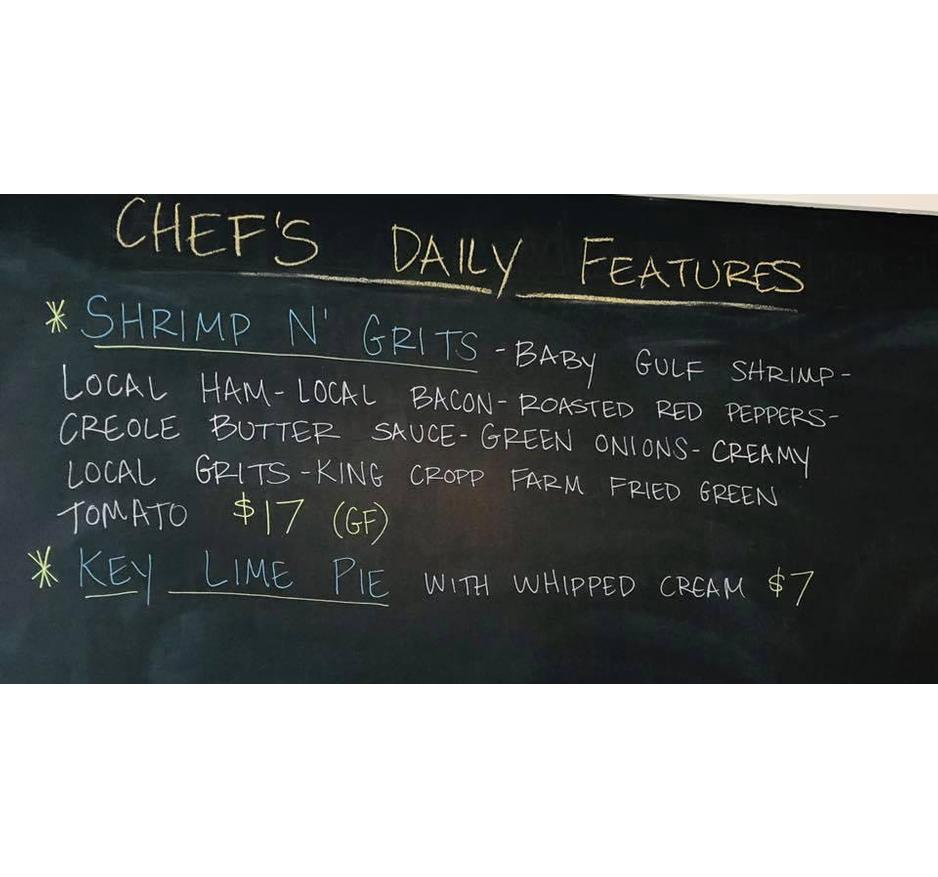 CHEF'S DAILY FEATURES
* SHRIMP N' GRITS - BABY GULF SHRIMP -
LOCAL HAM - LOCAL BACON - ROASTED RED PEPPERS -
CREOLE BUTTER SAUCE - GREEN ONIONS - CREAMY
LOCAL GRITS - KING CROPP FARM FRIED GREEN
TOMATO $17 (GF)
* KEY LIME PIE WITH WHIPPED CREAM $7